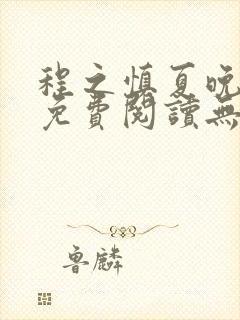 程之慎夏晚
免費閱讀無
魯麟